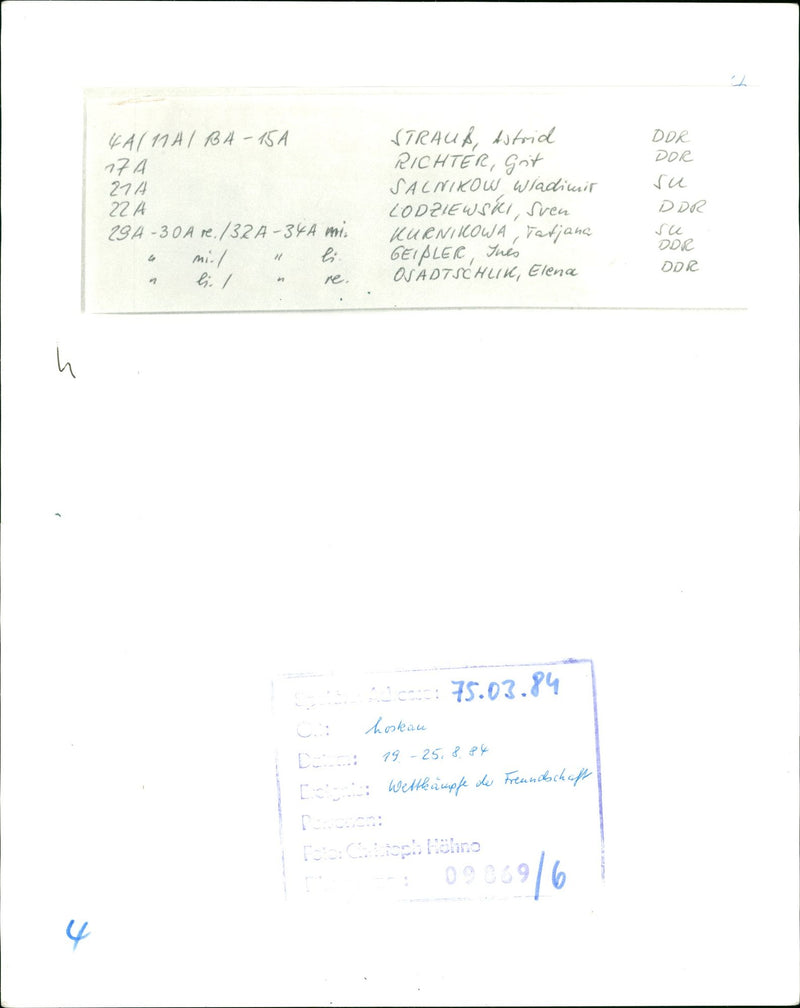 4A/11A/13A-15A STRAUß, Astrid DDR
17A RICHTER, Grit DDR
21A SALNIKOW, Wladimir SU
22A LODZIEWSKI, Sven DDR
29A-30A re./32A-34A mi. KURNIKOWA, Tatjana SU
" mi./ " li. GEIßLER, Ines DDR
" li./ " re. OSADTSCHUK, Elena DDR
h
75.03.84
Ort: Moskau
Datum: 19.-25.8.84
Ereignis: Wettkämpfe der Freundschaft
Personen:
Foto: Christoph Höhne
09869/6
4